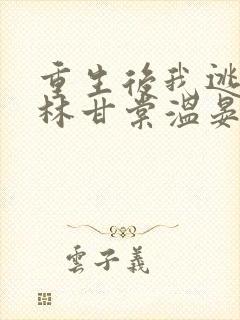 重生後我逃
林甘棠溫晏
雲子義